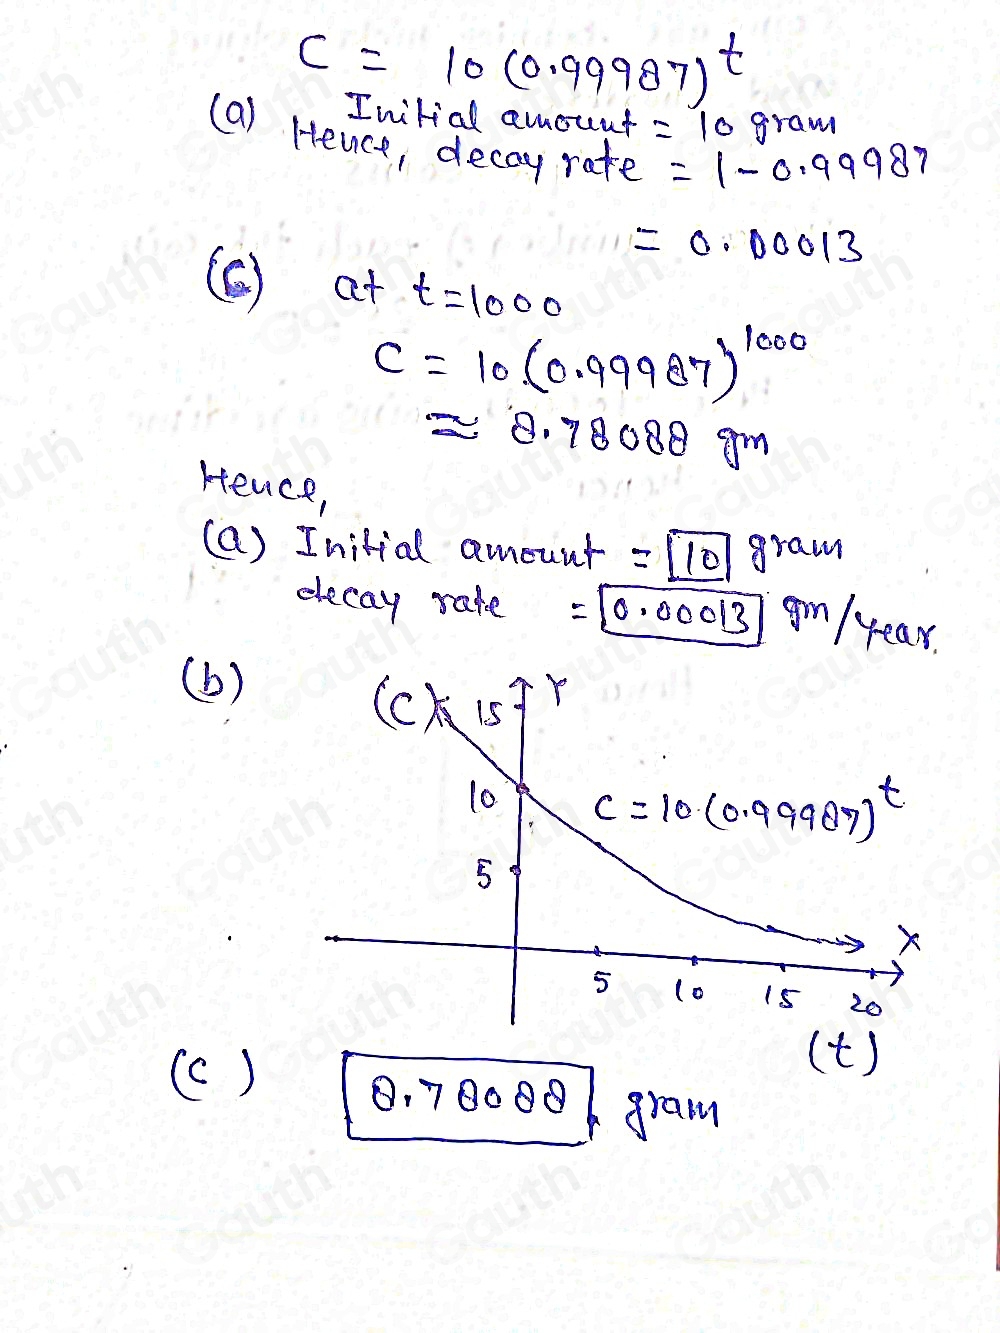 C = 10 (0.99987)^t
(a) Initial amount = 10 gram
Hence, decay rate = 1 - 0.99987
= 0.00013
(c) at t = 1000
C = 10 (0.99987)^1000
≈ 8.78088 gm
Hence,
(a) Initial amount = 10 gram
decay rate = 0.00013 gm/year.
(b)
(C) 15 Y
10
C = 10 (0.99987)^t
5
X
5 10 15 20
(t)
(c) 8.78088 gram
Gauth